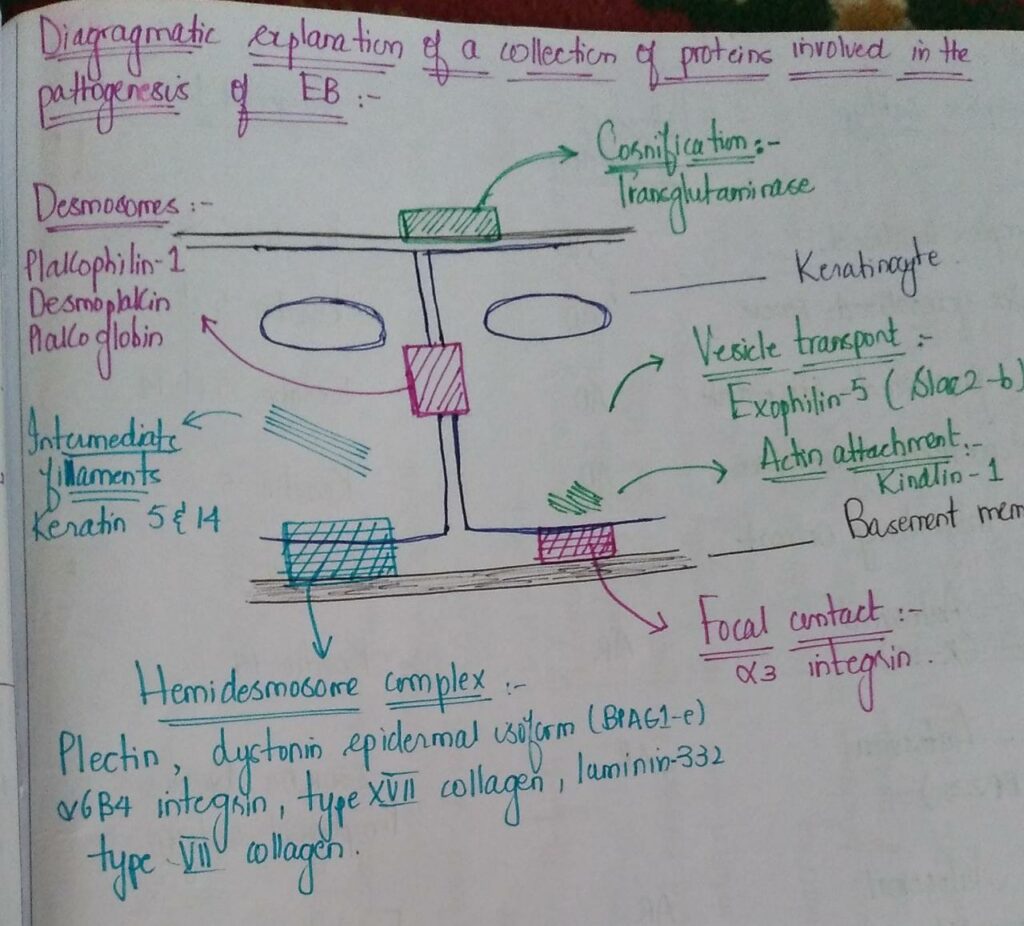 Diagragmatic explanation of a collection of proteins involved in the
pathogenesis of EB :-
Cosnification :-
Transglutaminase
Desmosomes :-
Plakophilin-1
Desmoplakin
Plakoglobin
Keratinocyte
Vesicle transport :-
Exophilin-5 (Slac2-b)
Actin attachment :-
Kindlin-1
Intermediate
fillaments
Keratin 5 & 14
Basement mem
Focal contact :-
α3 integrin.
Hemidesmosome complex :-
Plectin, dystonin epidermal isoform (BPAG1-e)
α6B4 integrin, type XVII collagen, laminin-332
type VII collagen.